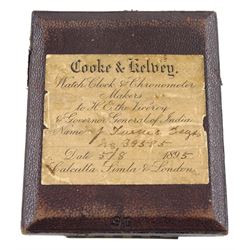 Cooke & Kelvey.
Watch Clock & Chronometer
Makers
to H.E. the Viceroy
& Governor General of India
Name J
No 39585
Date 5/8 1895
Calcutta Simla & London.